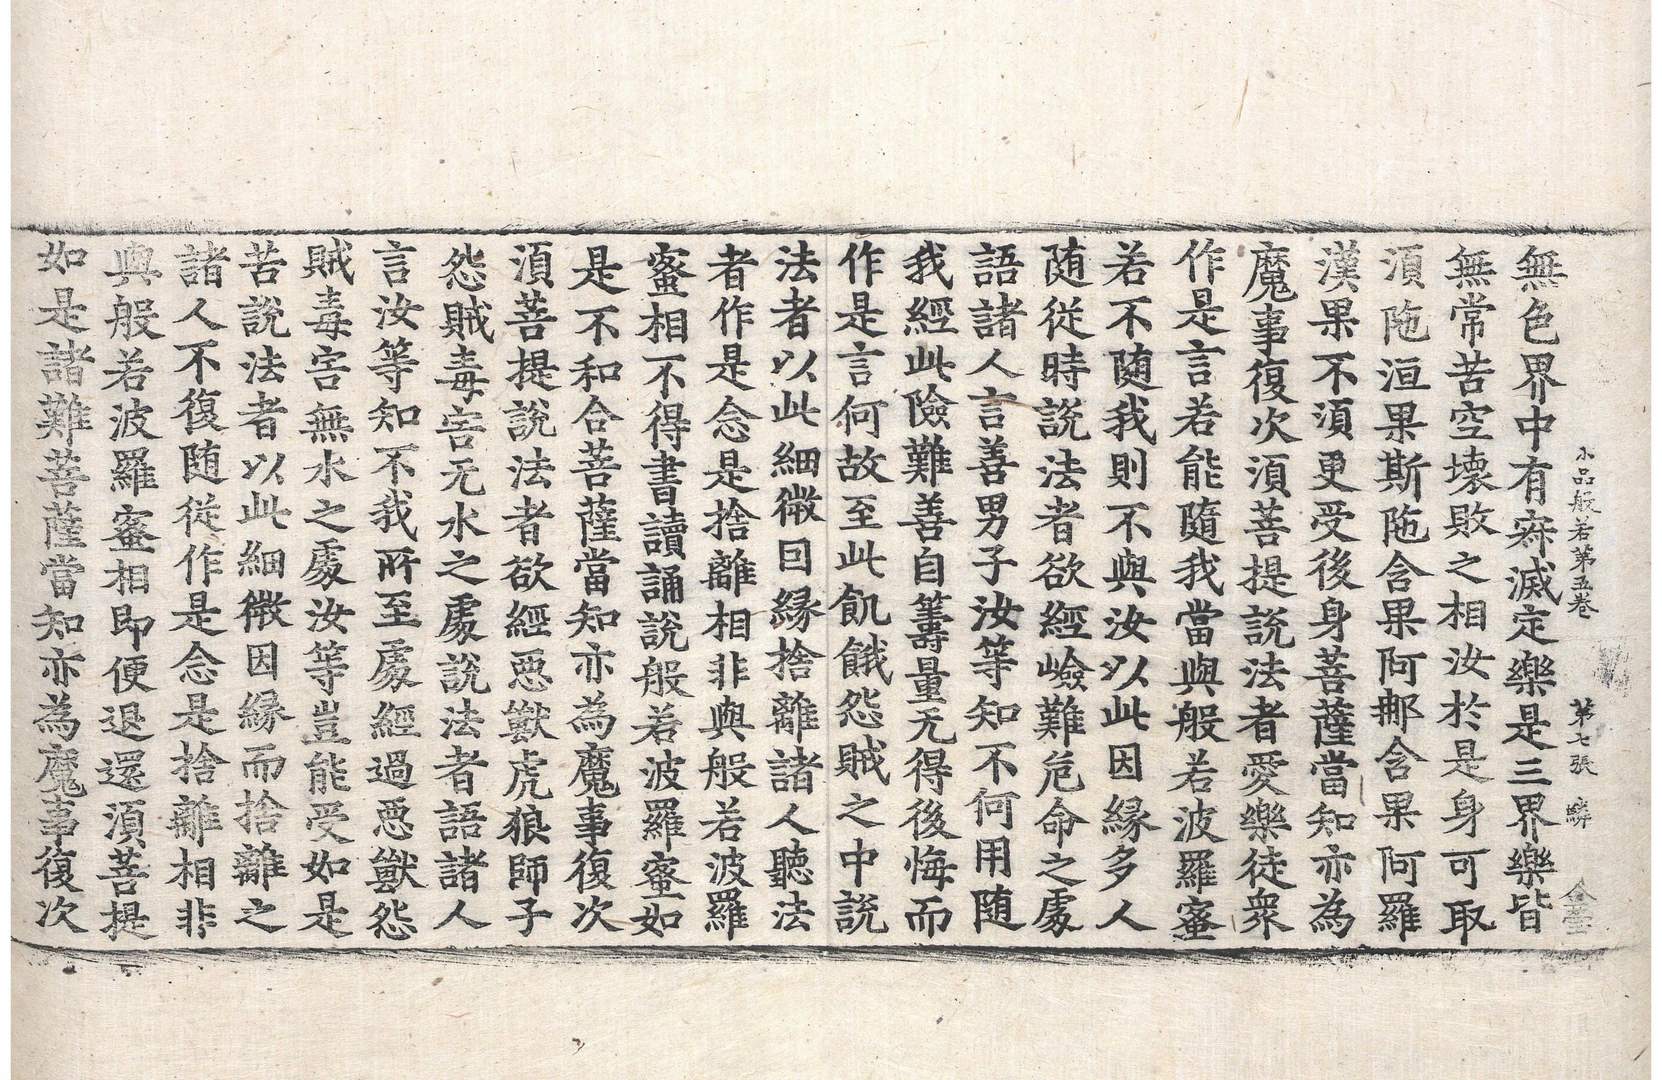 小品般若第五卷 第七張 鱗
無色界中有㝥滅定樂是三界樂皆
無常苦空壞敗之相汝於是身可取
湏陁洹果斯陁含果阿那含果阿羅
漢果不湏更受後身菩薩當知亦為
魔事復次湏菩提說法者愛樂徒衆
作是言若能隨我當與般若波羅蜜
若不随我則不與汝以此因縁多人
随從時說法者欲經嶮難危命之處
語諸人言善男子汝等知不何用随
我經此險難善自籌量无得後悔而
作是言何故至此飢餓怨賊之中說
法者以此細微因縁捨離諸人聽法
者作是念是捨離相非與般若波羅
蜜相不得書讀誦說般若波羅蜜如
是不和合菩薩當知亦為魔事復次
湏菩提說法者欲經惡獸虎狼師子
怨賊毒害无水之處說法者語諸人
言汝等知不我所至處經過惡獸怨
賊毒害無水之處汝等豈能受如是
苦說法者以此細微因縁而捨離之
諸人不復随從作是念是捨離相非
與般若波羅蜜相即便退還湏菩提
如是諸難菩薩當知亦為魔事復次